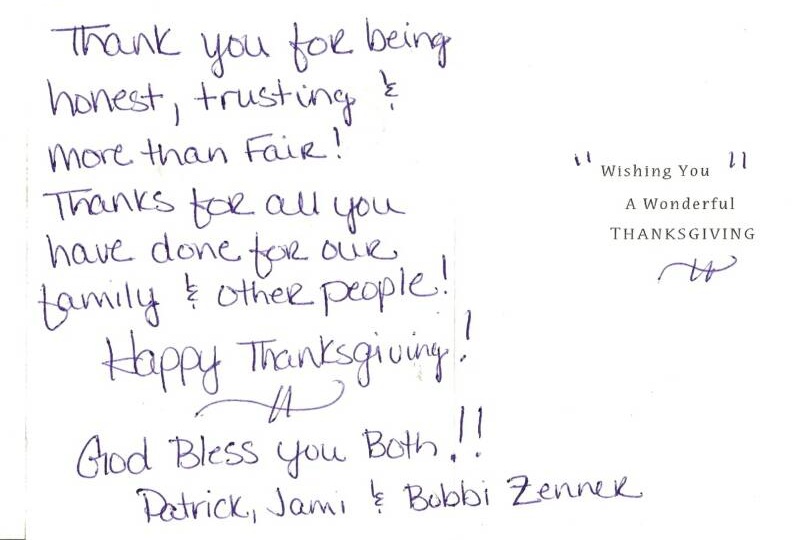 Thank you for being
honest, trusting &
more than Fair!
Thanks for all you
have done for our
family & other people!
Happy Thanksgiving!
God Bless you Both!!
Patrick, Jami & Bobbi Zenner
" Wishing You "
A Wonderful
THANKSGIVING